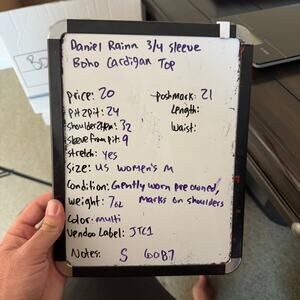 Daniel Rainn 3/4 sleeve
Boho Cardigan Top
price: 20 poshmark: 21
pit2pit: 24 Length:
shoulder2hem: 32 Waist:
sleeve from pit: 9
stretch: yes
Size: US women's M
Condition: Gently worn pre owned,
weight: 7oz marks on shoulders
Color: multi
Vendoo Label: JTC1
Notes: S 60B7